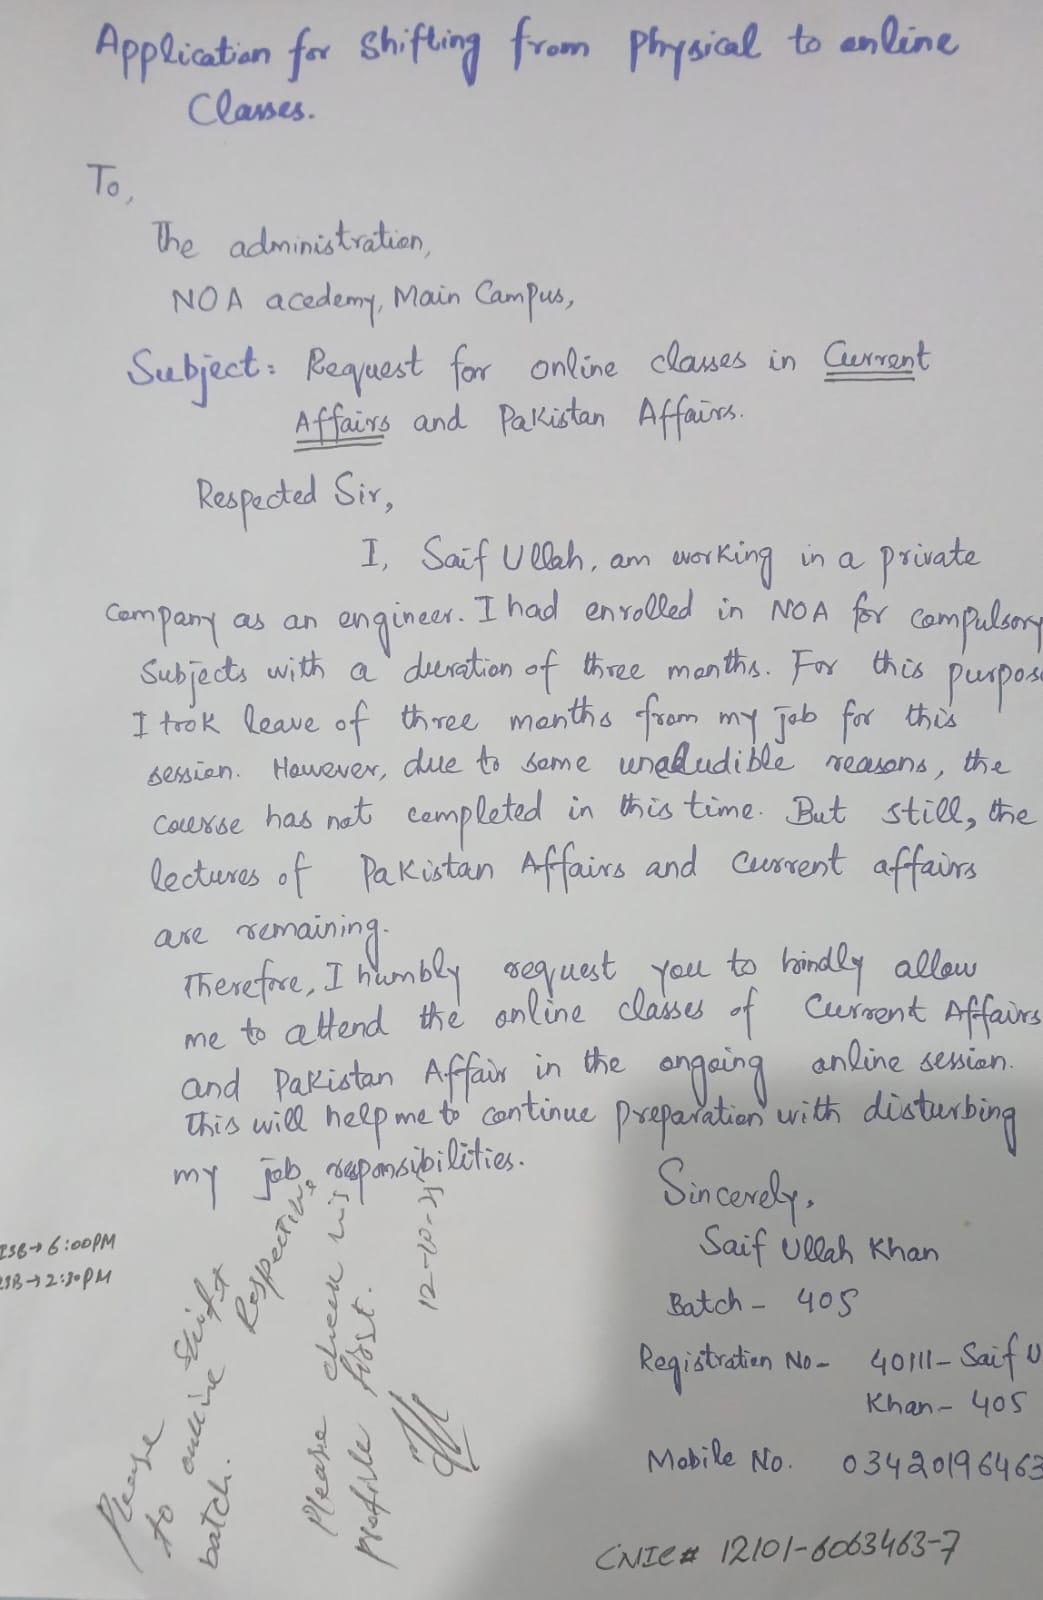 Application for Shifting from Physical to online
Classes.
To,
The administration,
NOA acedemy, Main Campus,
Subject: Request for online classes in Current
Affairs and Pakistan Affairs.
Respected Sir,
I, Saif Ullah, am working in a private
Company as an engineer. I had enrolled in NOA for compulsory
Subjects with a duration of three months. For this purpose
I took leave of three months from my job for this
session. However, due to some reasons, the
course has not completed in this time. But still, the
lectures of Pakistan Affairs and Current affairs
are remaining.
Therefore, I humbly request you to kindly allow
me to attend the online classes of Current Affairs
and Pakistan Affair in the ongoing online session.
This will help me to continue preparation with disturbing
my job responsibilities.
Sincerely,
Saif Ullah Khan
Batch - 405
Registration No - 40111 - Saif U
Khan - 405
Mobile No. 03420196463
CNIC # 12101-6063463-7
ISB → 6:00PM
→ 2:30PM
Please shift
to online
batch. Respective
Please check his
profile first.
12-10-25